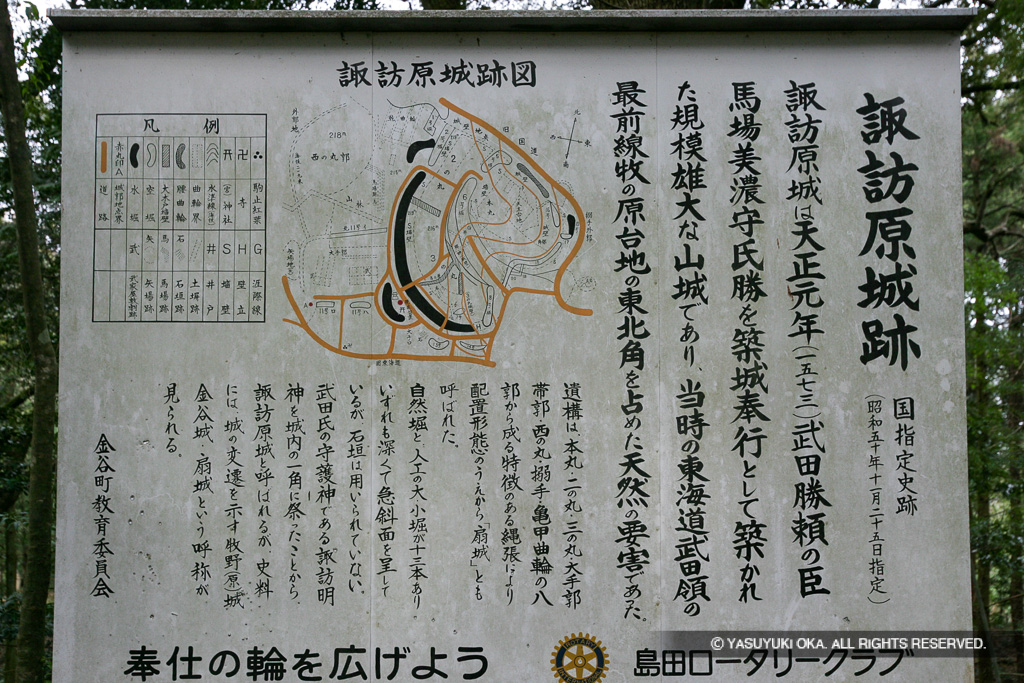 諏訪原城跡
国指定史跡
(昭和五十年十一月二十五日指定)
諏訪原城は天正元年(一五七三)武田勝頼の臣
馬場美濃守氏勝を築城奉行として築かれ
た規模雄大な山城であり、当時の東海道武田領の
最前線牧の原台地の東北角を占めた天然の要害であった。
遺構は本丸・二の丸・三の丸・大手郭
帯郭・西の丸・搦手・亀甲曲輪の八
郭から成る特徴のある縄張により
配置形態のうえから「扇城」とも
呼ばれた。
自然堀と、人工の大小堀が十三本あり
いずれも深くて急斜面を呈して
いるが、石垣は用いられていない。
武田氏の守護神である諏訪明
神を城内の一角に祭ったことから、
諏訪原城と呼ばれるが、史料
には、城の変遷を示す牧野(原)城
金谷城、扇城という呼称が
見られる。
金谷町教育委員会
諏訪原城跡図
凡例
道路
水堀
空堀
腰曲輪
曲輪界
神社
寺
武
矢
馬
石
井
S
H
G
矢場跡
馬場跡
石垣跡
土塀跡
井戸
壁立
西の丸郭
218
山林
大手郭
旧国道
北
東
奉仕の輪を広げよう
島田ロータリークラブ
© YASUYUKI OKA. ALL RIGHTS RESERVED.